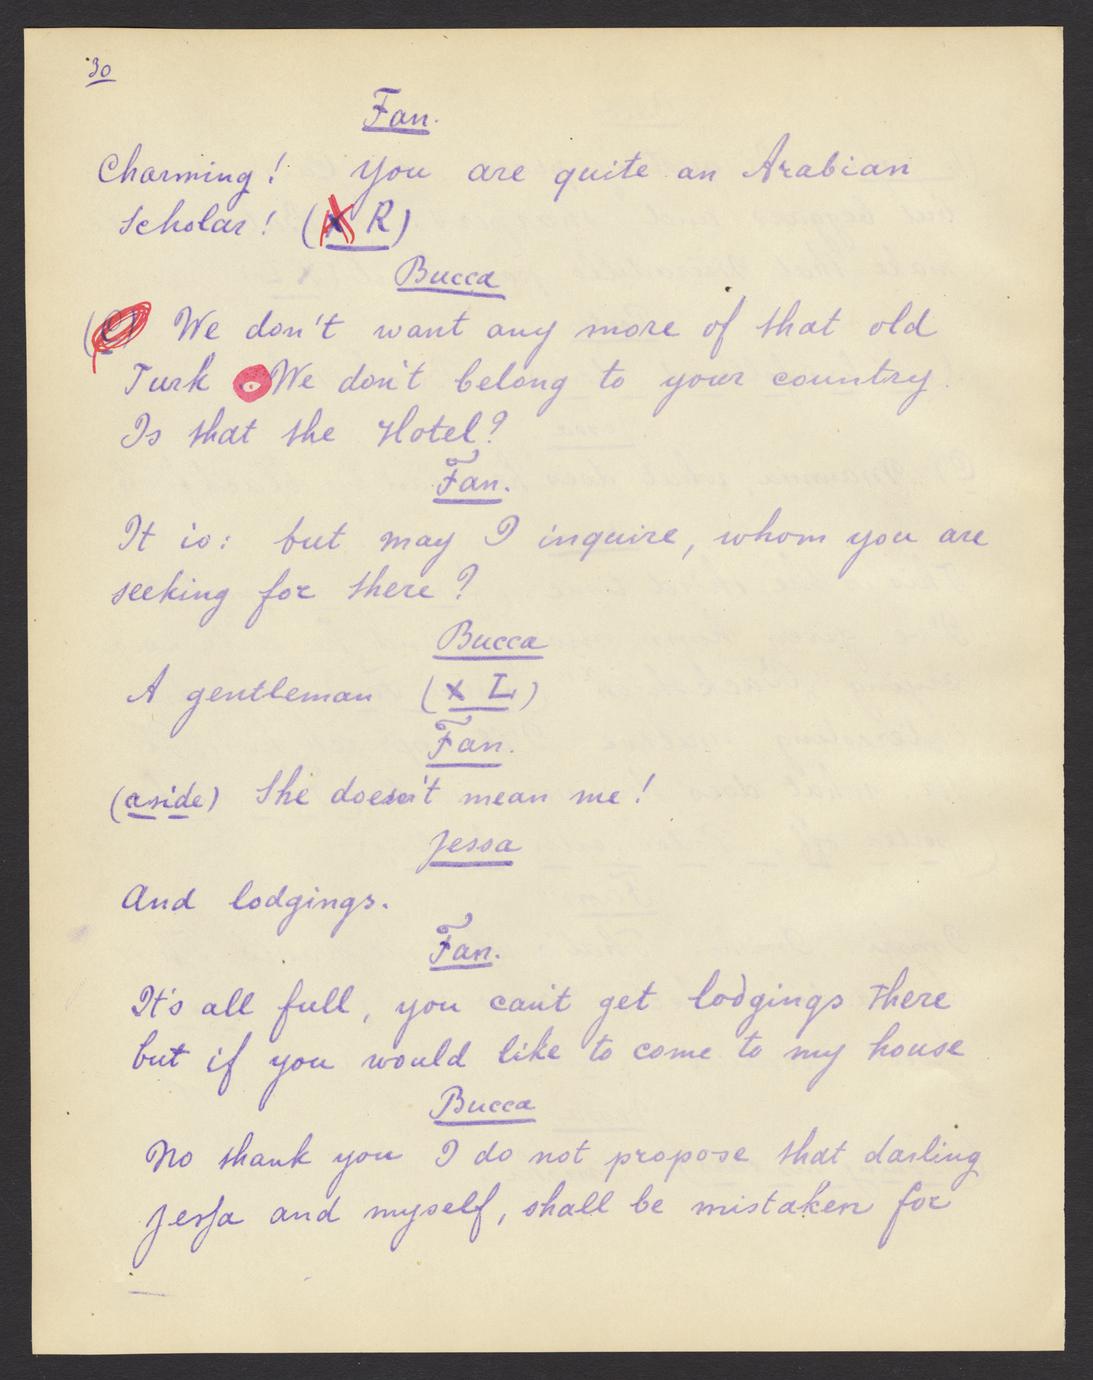 30
Fan.
Charming! You are quite an Arabian
Scholar! (X R)
Bucca
We don't want any more of that old
Turk. We don't belong to your country.
Is that the Hotel?
Fan.
It is: but may I inquire, whom you are
seeking for there?
Bucca
A gentleman (x L)
Fan.
(aside) She doesn't mean me!
Jessa
And lodgings.
Fan.
It's all full, you can't get lodgings there
but if you would like to come to my house
Bucca
No thank you I do not propose that darling
Jessa and myself, shall be mistaken for